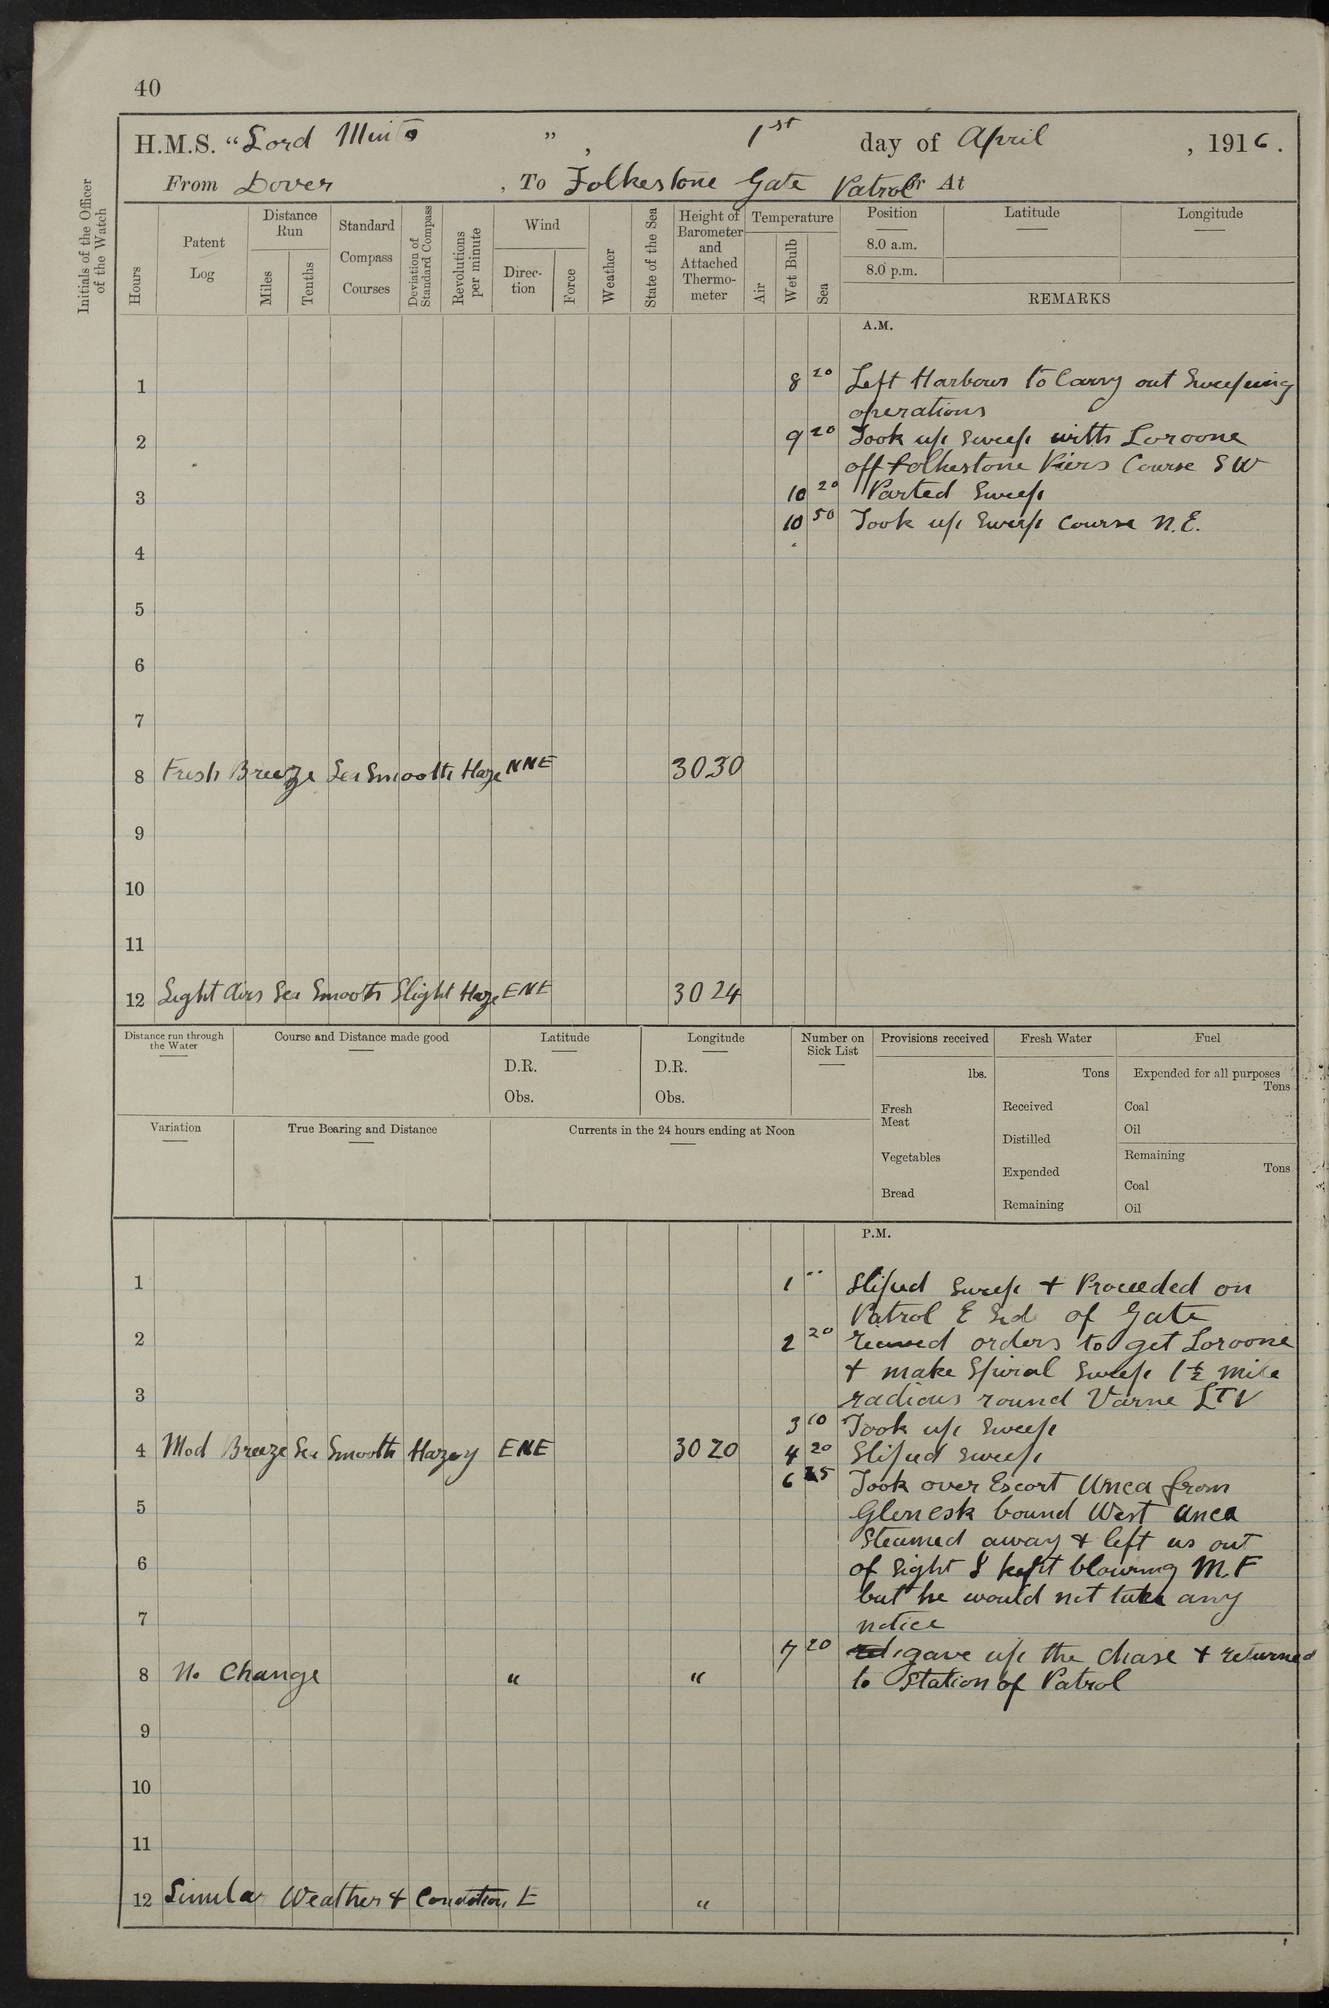 40
H.M.S. "Lord Minto ", 1st day of April, 1916.
From Dover, To Folkestone Gate Patrol or At
Initials of the Officer of the Watch
Hours
Patent Log
Distance Run
Miles
Tenths
Standard Compass Courses
Deviation of Standard Compass
Revolutions per minute
Wind
Direc-tion
Force
Weather
State of the Sea
Height of Barometer and Attached Thermo-meter
Temperature
Air
Wet Bulb
Sea
Position
8.0 a.m.
8.0 p.m.
Latitude
Longitude
REMARKS
A.M.
1 8 20 Left Harbour to Carry out Sweeping
operations
2 9 20 Took up Sweep with Loroone
off Folkestone Piers Course SW
3 10 20 Parted Sweep
10 50 Took up Sweep Course N.E.
4
5
6
7
8 Fresh Breeze Sea Smooth Haze NNE 3030
9
10
11
12 Light Airs Sea Smooth Slight Haze ENE 3024
Distance run through the Water
Course and Distance made good
Latitude
D.R.
Obs.
Longitude
D.R.
Obs.
Number on Sick List
Provisions received
lbs.
Fresh Meat
Vegetables
Bread
Fresh Water
Tons
Received
Distilled
Expended
Remaining
Fuel
Expended for all purposes
Tons
Coal
Oil
Remaining
Tons
Coal
Oil
Variation
True Bearing and Distance
Currents in the 24 hours ending at Noon
P.M.
1 1 " Sliped Sweep + Proceeded on
Patrol E End of Gate
2 2 20 recieved orders to get Loroone
+ make Spiral Sweep 1½ mile
3 radious round Varne LTV
3 10 Took up Sweep
4 Mod Breeze Sea Smooth Hazey ENE 3020 4 20 Sliped Sweep
6 25 Took over Escort Unca from
5 Glenesk bound West Unca
Steamed away + left us out
6 of Sight I kept blowing M.F
but he would not take any
7 notice
7 20 gave up the chase + returned
8 No Change " " to Station of Patrol
9
10
11
12 Simular Weather + Condition E "